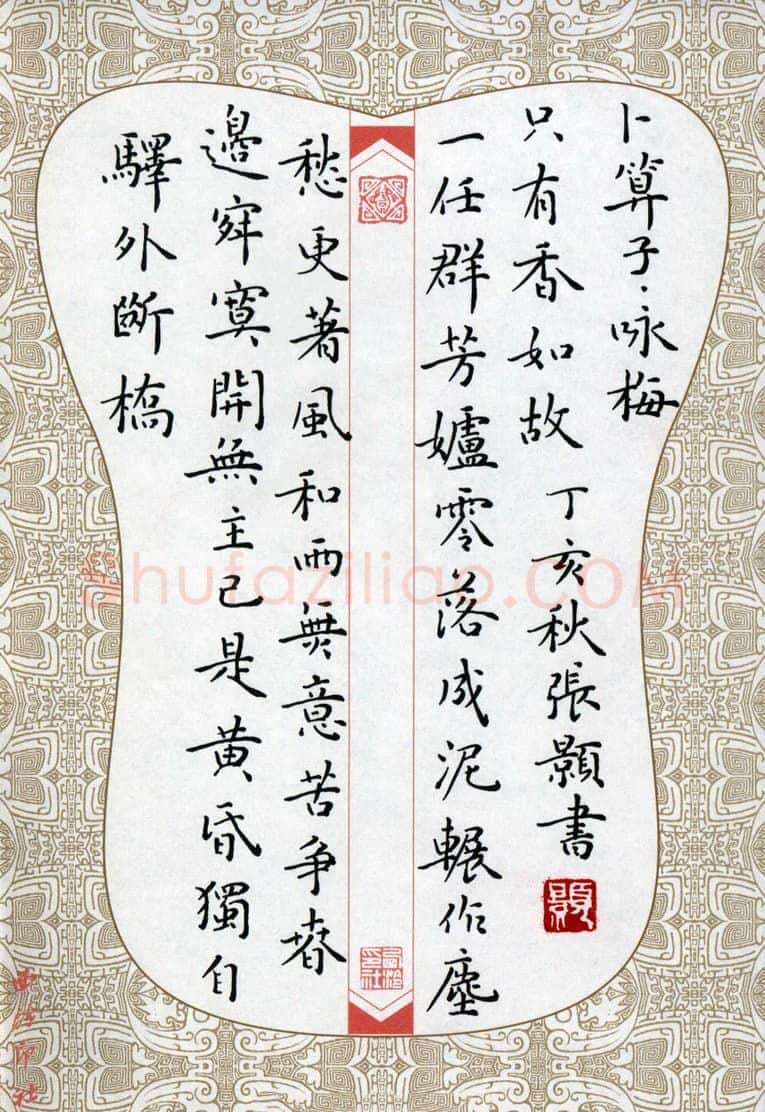 驛外斷橋
邊寂寞開無主已是黃昏獨自
愁更著風和雨無意苦爭春
一任群芳妒零落成泥輾作塵
只有香如故 丁亥秋張顥書
卜算子·咏梅
西泠印社
西泠印社
Shufaziliao.COM